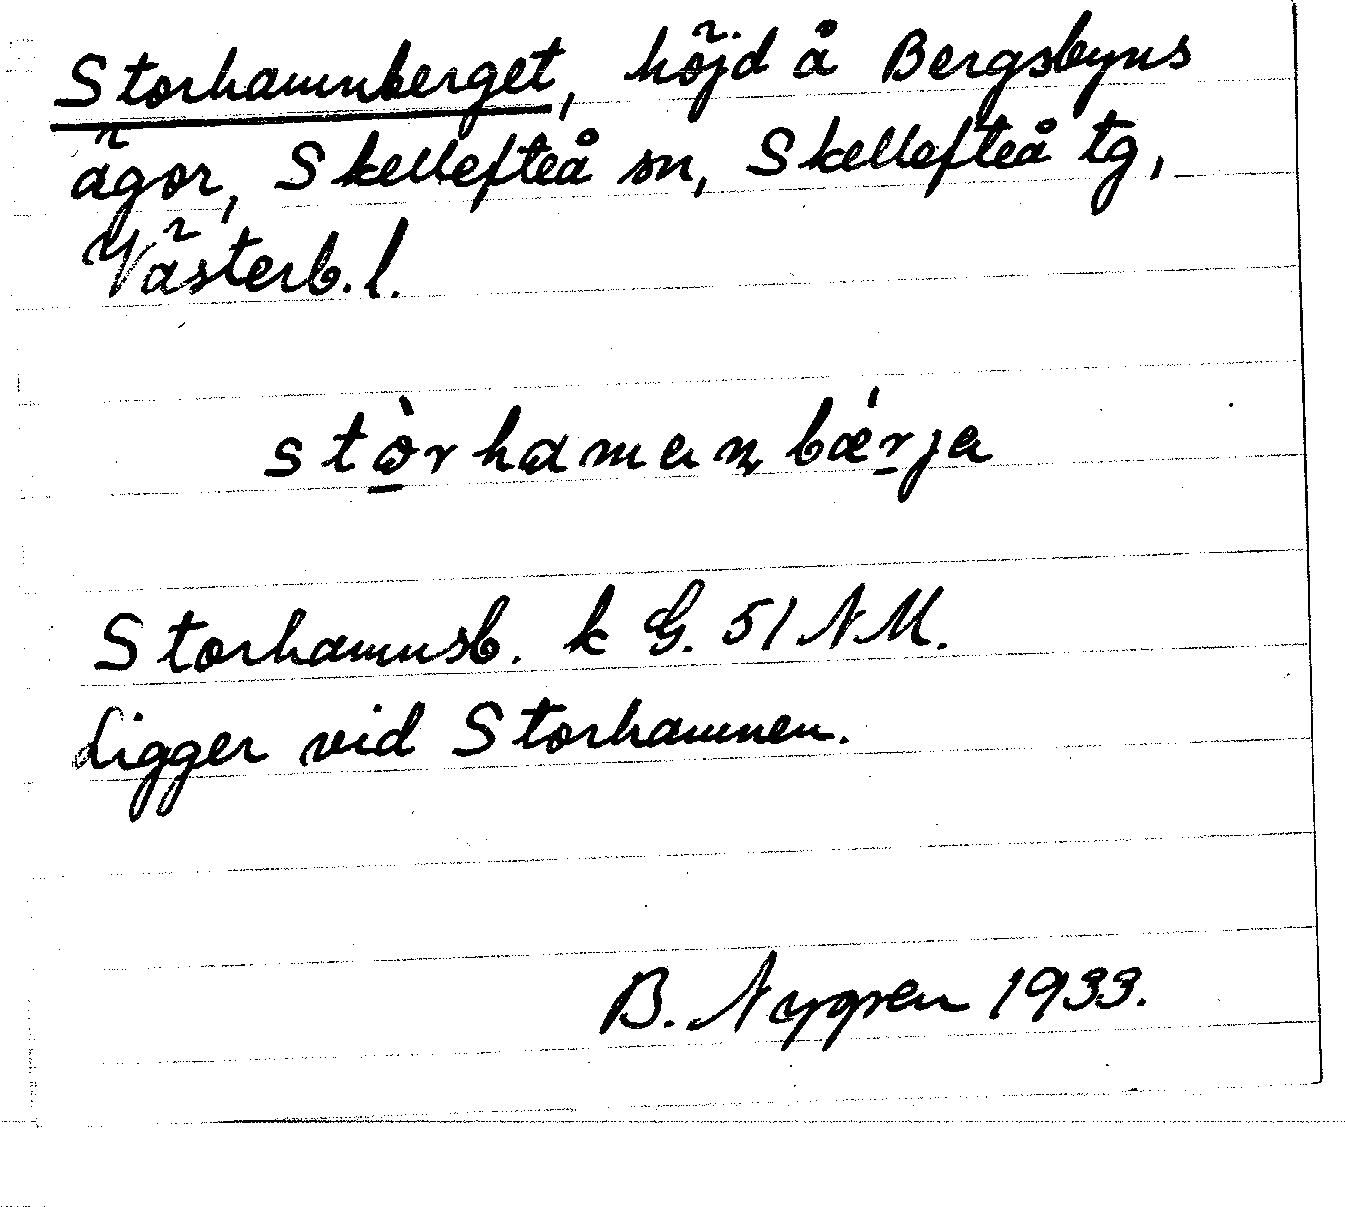 Storhamnberget, höjd å Bergsbyns
ägor, Skellefteå sn, Skellefteå tg,
Västerb. l.
stòrhamanbǽrja
Storhamnsb. k G. 51 NM.
Ligger vid Storhamnen.
B. Nygren 1933.